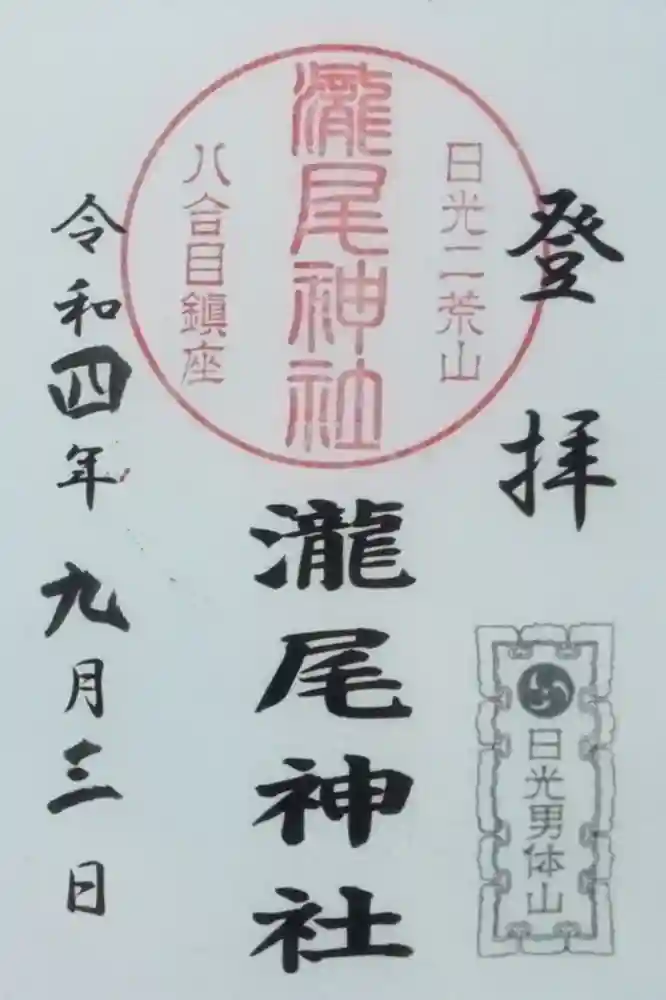 登拝
日光二荒山
瀧尾神社
八合目鎮座
日光男体山
瀧尾神社
令和四年九月三日